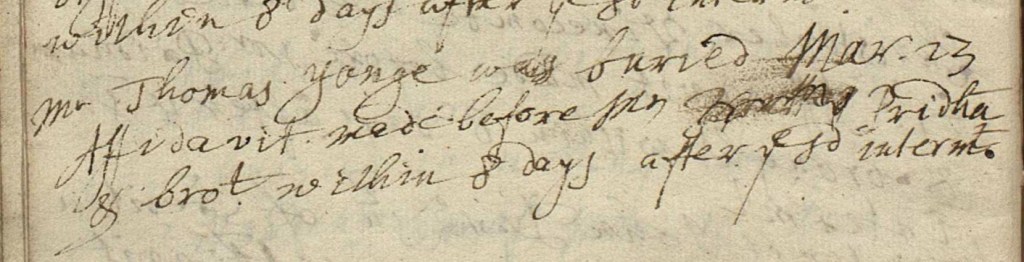 within 8 days after ye sd interm.
Mr Thomas Yonge was buried Mar. 23
Affidavit made before Mr Pridhā
& brot. within 8 days after ye sd interm̄t.